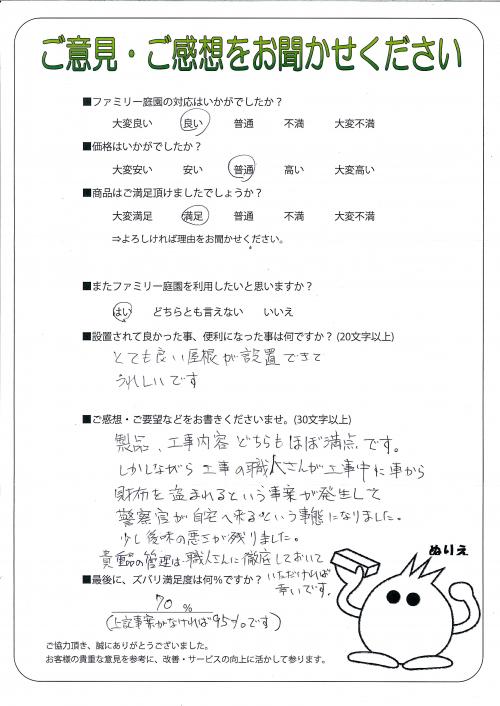 ご意見・ご感想をお聞かせください
■ファミリー庭園の対応はいかがでしたか？
大変良い 良い 普通 不満 大変不満
■価格はいかがでしたか？
大変安い 安い 普通 高い 大変高い
■商品はご満足頂けましたでしょうか？
大変満足 満足 普通 不満 大変不満
⇒よろしければ理由をお聞かせください。
■またファミリー庭園を利用したいと思いますか？
はい どちらとも言えない いいえ
■設置されて良かった事、便利になった事は何ですか？(20文字以上)
とても良い屋根が設置できて
うれしいです
■ご感想・ご要望などをお書きくださいませ。(30文字以上)
製品、工事内容どちらもほぼ満点です。
しかしながら工事の職人さんが工事中に車から
財布を盗まれるという事案が発生して
警察官が自宅へ来るという事態になりました。
少し後味の悪さが残りました。
貴重品の管理は職人さんに徹底しておいて
いただければ
幸いです。
ぬりえ
■最後に、ズバリ満足度は何%ですか？
70 %
(上記事案がなければ95%です)
ご協力頂き、誠にありがとうございました。
お客様の貴重な意見を参考に、改善・サービスの向上に活かして参ります。